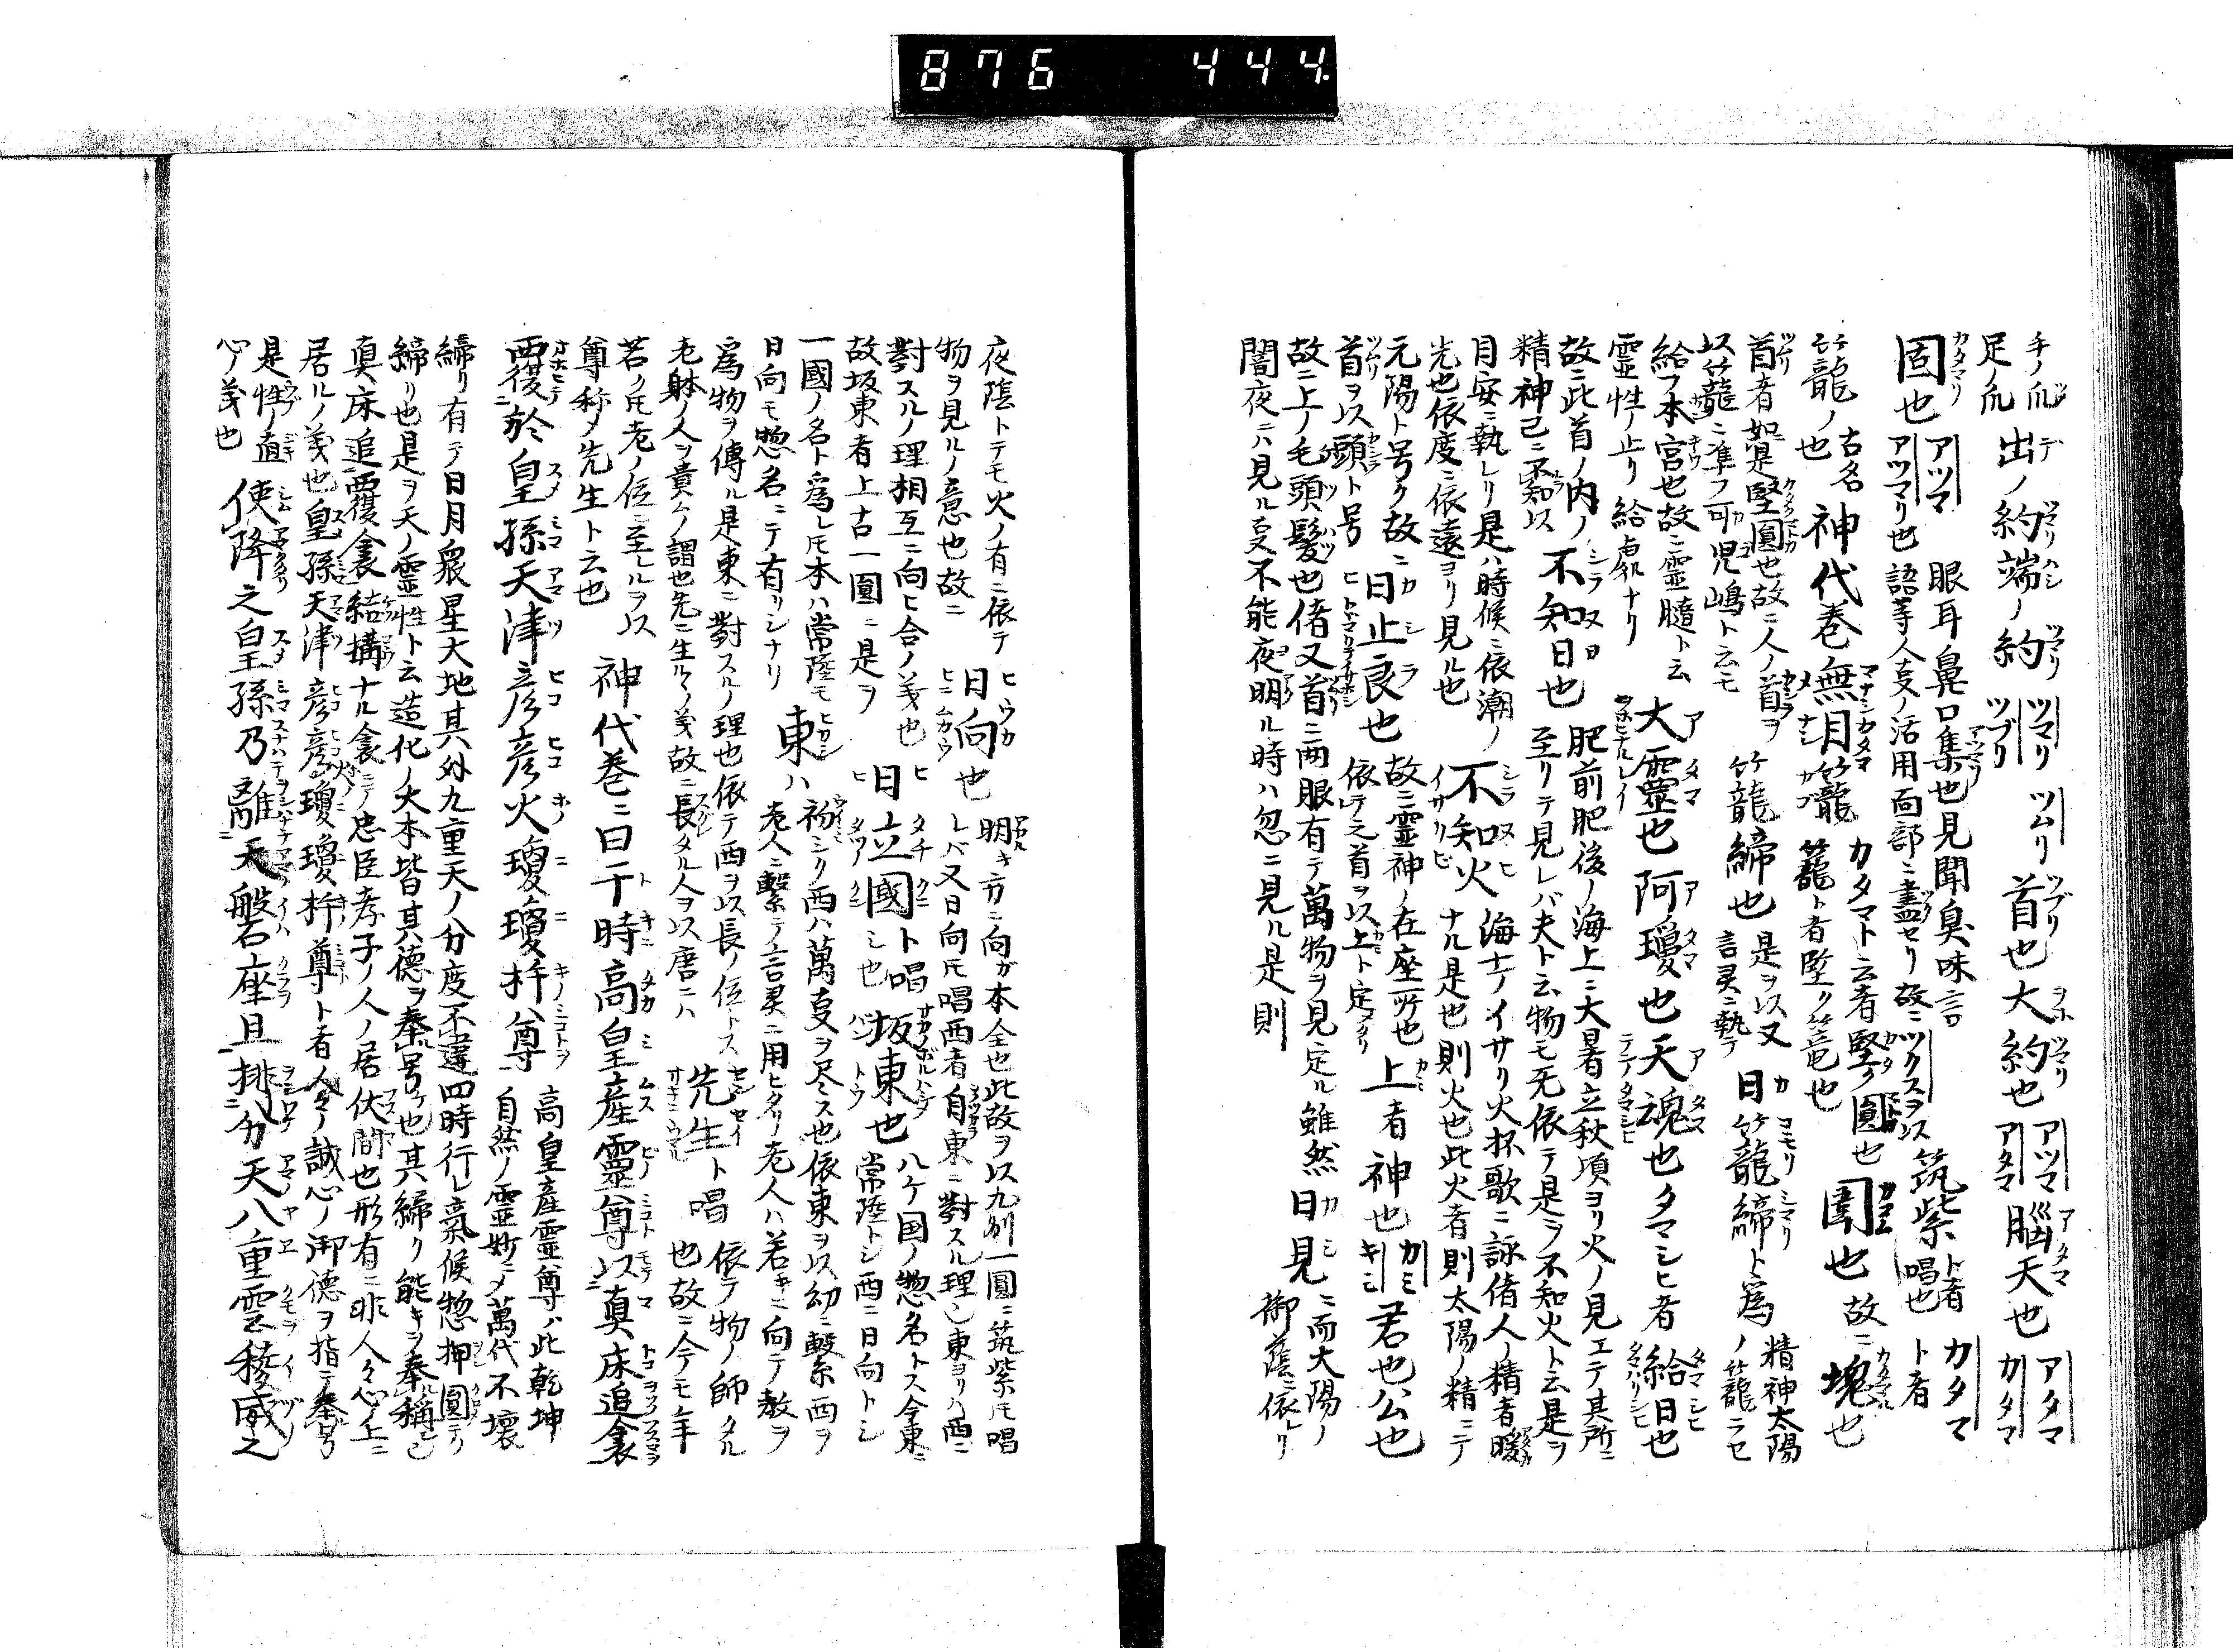 876 444.
手ノ爪出ノ約端ノ約 ツマリ ツブリ ツムリ 首也大約也 アツマ アタマ 脳天也 アタマ カタマ
足ノ爪
固也 アツマ アツマリ也 眼耳鼻口集也見聞臭味言 語等人㕝ノ活用面部ニ盡セリ故ニツクスヲ以 筑紫ト者唱也 カタマト者
籠ノ古名也 神代巻無目籠 カタマト云者堅ク圓也 籠ト者堅ク篭也 圍也故ニ塊也
首者如是堅圓也故ニ人ノ首ヲ以籠ニ準フ可児嶋ト云モ 籠締也 是ヲ以又言灵ニ執テ 日籠締ト為 精神太陽ノ籠ラセ
給フ本宮也故ニ霊髓ト云
霊性ノ止リ給處ナリ 大靈也阿瓊也天魂也タマシヒ者給日也
故ニ此首ノ内ノ精神己ニ不知以 不知日也 肥前肥後ノ海上ニ大暑立秋頃ヨリ火ノ見エテ其所ニ至リテ見レバ夫ト云物モ无依テ是ヲ不知火ト云是ヲ
目安ニ執レリ是ハ時候ニ依潮ノ光也依度ニ依遠ヨリ見ル也 不知火 海士ノイサリ火抔歌ニ詠偖人ノ精者暖ナル是也則火也此火者則太陽ノ精ニテ
元陽ト号ク故ニ日止良也 故ニ霊神ノ在座所也 上者神也 カミ キミ 君也公也
首ヲ以頭ト号 依テ之首ヲ以上ト定
故ニ上ノ毛頭髪也偖又首ニ両眼有テ萬物ヲ見定ル雖然日見ニ而大陽ノ御蔭ニ依レリ
闇夜ニハ見ル㕝不能夜明ル時ハ忽ニ見ル是則
夜陰トテモ火ノ有ニ依テ物ヲ見ルノ意也故ニ 日向也 明キ方ニ向ガ本全也此故ヲ以九州一圓ニ筑紫トモ唱レバ又日向トモ唱西者自東ニ對スル理也東ヨリハ西ニ
對スルノ理相互ニ向ヒ合ノ義也
故坂東者上古一圓ニ是ヲ 日立國ト唱シ也 坂東也 八ケ国ノ惣名トス今東ニ常陸トシ西ニ日向トシ
一國ノ名ト為レ𪜈本ハ常陸モ日向モ惣名ニテ有リシナリ 東ハ 初シリ西ハ萬㕝ヲ尽ス也依東ヲ以幼ニ繋西ヲ老人ニ繋テ言灵ニ用ヒタリ老人ハ若キニ向テ教ヲ
為物ヲ傳ル是東ニ對スルノ理也依テ西ヲ以長ノ位トス
老躰ノ人ヲ貴ムノ謂也先ニ生ルヽノ義故ニ長タル人ヲ以唐ニハ 先生ト唱 依テ物ノ師タル也故ニ今モ年
若ク𪜈老ノ位ニ至レルヲ以尊称メ先生ト云也 神代巻ニ曰于時高皇産靈尊以真床追衾
覆於皇孫天津彦彦火瓊瓊杵尊 高皇産霊尊ハ此乾坤自然ノ霊妙ニメ萬代不壊
締リ有テ日月衆星大地其外九重天ノ分度不違四時行レ氣候惣押圓テノ
締リ也是ヲ天ノ霊性ト云造化ノ大本皆其徳ヲ奉号ケ也其締リ能キヲ奉稱也
真床追覆衾結構ナル衾ニテ忠臣孝子ノ人ノ居伏間也形有ニ非人々心上ニ
居ルノ義也皇孫天津彦彦火瓊瓊杵尊ト者人々ノ誠心ノ御徳ヲ指テ奉号
是性ノ直心ノ義也 使降之皇孫乃離天磐座且排分天八重雲稜威之